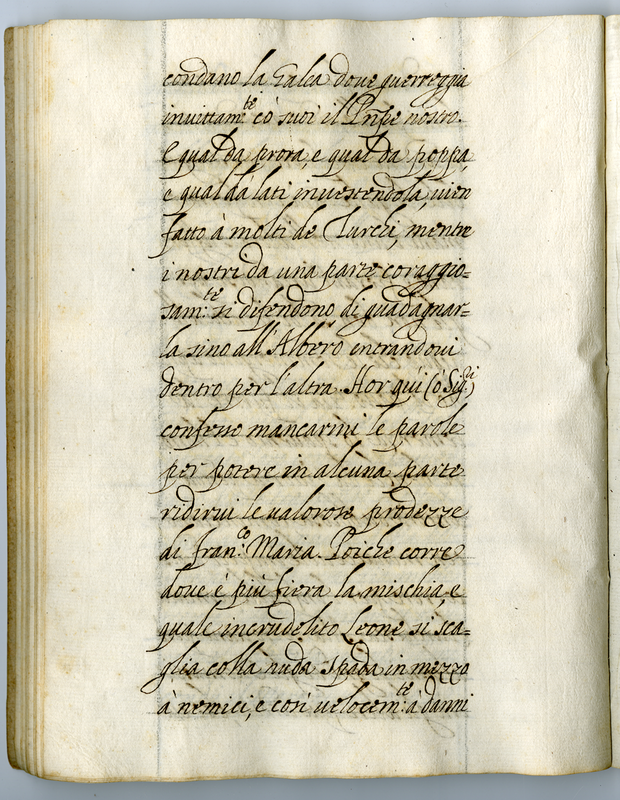 condano la Galea doue guerreggia
inuittam.te cò suoi il Prñpe nostro.
E qual da prora, e qual da poppa,
e qual da lati inuestendola, uien
fatto à molti de Turchi, mentre
i nostri da una parte coraggio=
sam.te si difendono di guadagnar=
la sino all'Albero entrandoui
dentro per l'altra. Hor qui (ò Sig.ri)
confesso mancarmi le parole
per potere in alcuna parte
ridirui le ualorose prodezze
di Fran.co Maria. Poiche corre
doue è più fiera la mischia, e
quale incrudelito Leone si sca=
glia colla nuda spada in mezzo
à nemici, e così uelocem.te à danni